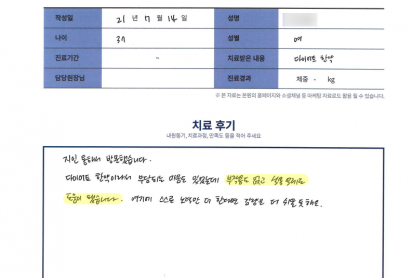 작성일 21 년 7 월 14 일 성명
나이 37 성별 여
진료기간 - 치료받은 내용 다이어트 한약
담당원장님 진료경과 체중 - kg
※ 본 자료는 본원의 홈페이지와 소셜채널 등 마케팅 자료로도 활용 될 수 있습니다.
치료 후기
내원동기, 치료과정, 만족도 등을 적어 주세요
지인 통해서 방문했습니다.
다이어트 한약이라서 부담되는 마음도 있었는데 부작용도 없고
도움이 됐습니다. 여기에 스스로 노력만 더 한다면 감량은 더 쉬울 듯해요.